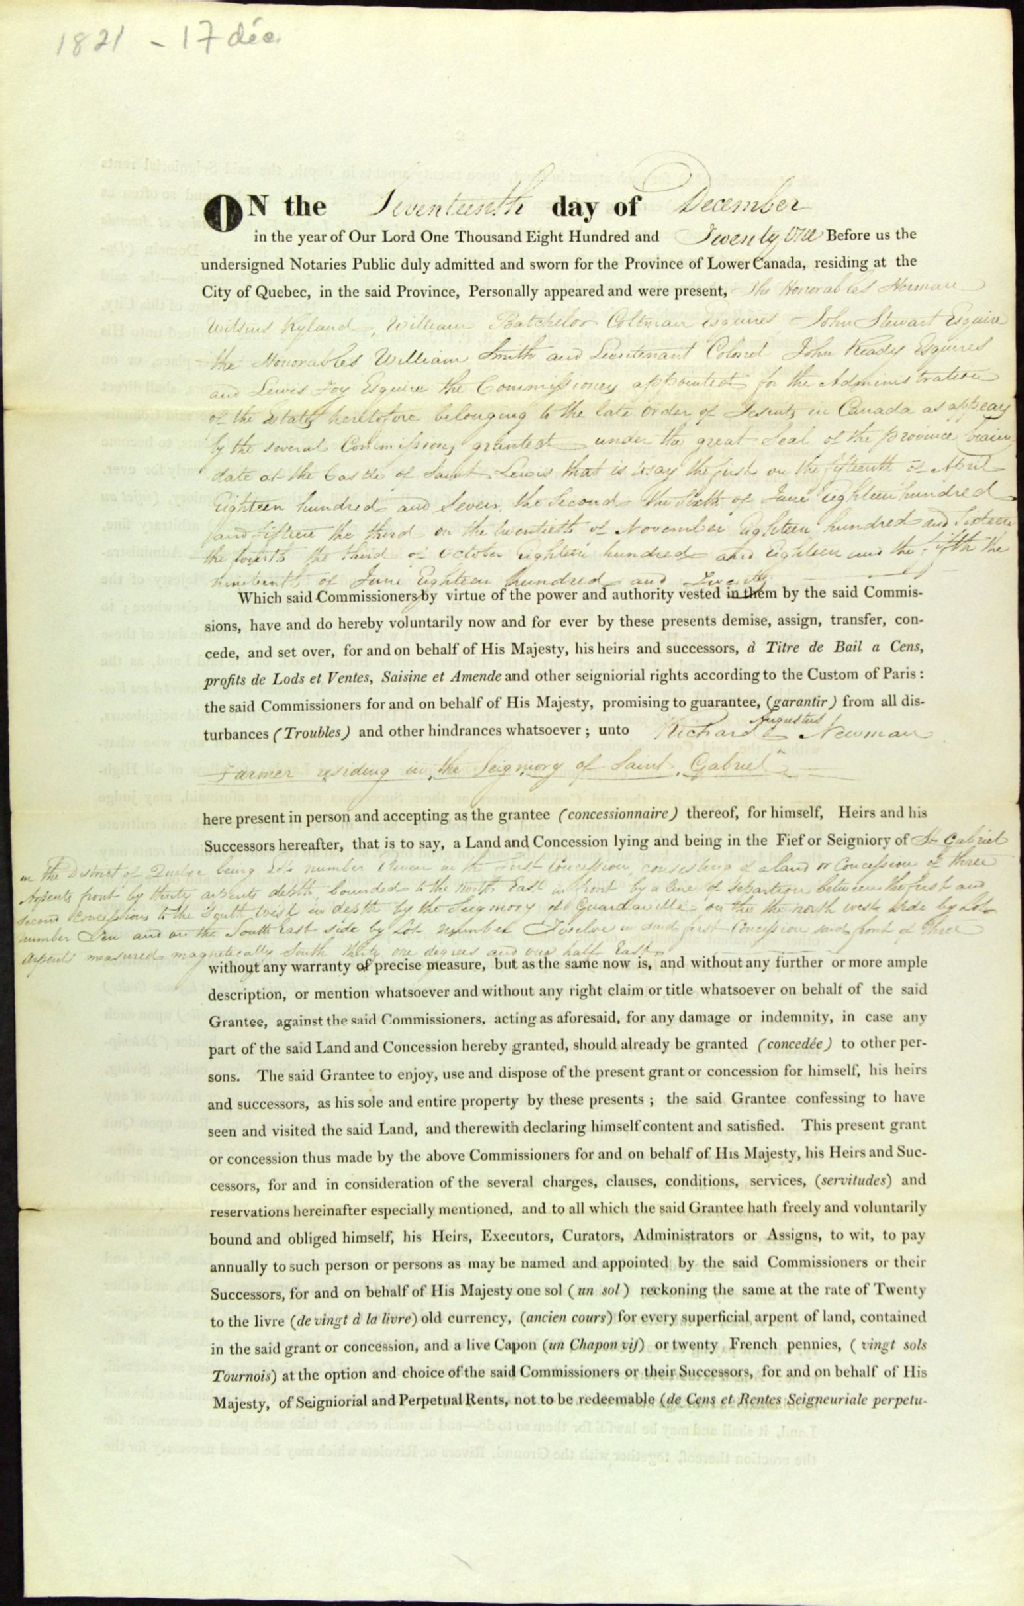 1821 - 17 déc.
ON the Seventeenth day of December
in the year of Our Lord One Thousand Eight Hundred and Twenty one Before us the
undersigned Notaries Public duly admitted and sworn for the Province of Lower Canada, residing at the
City of Quebec, in the said Province, Personally appeared and were present, The Honorables Herman
Witsius Ryland, William Batchelor Coltman Esquires John Stewart Esquire
the Honorables William Smith and Lieutenant Colonel John Ready Esquires
and Lewis Foy Esquire the Commissioners appointed for the Administration
of the Estates heretofore belonging to the late Order of Jesuits in Canada as appears
by the several Commissions granted under the great Seal of the province bearing
date at the Castle of Saint Lewis that is to say the first on the fifteenth of April
Eighteen hundred and Seven, the Second the Sixth of June Eighteen hundred
and fifteen the third on the twentieth of November Eighteen hundred and Sixteen
the fourth the third of October eighteen hundred and eighteen and the fifth the
nineteenth of June Eighteen hundred and Twenty
Which said Commissioners by virtue of the power and authority vested in them by the said Commis-
sions, have and do hereby voluntarily now and for ever by these presents demise, assign, transfer, con-
cede, and set over, for and on behalf of His Majesty, his heirs and successors, à Titre de Bail a Cens,
profits de Lods et Ventes, Saisine et Amende and other seigniorial rights according to the Custom of Paris :
the said Commissioners for and on behalf of His Majesty, promising to guarantee, (garantir) from all dis-
turbances (Troubles) and other hindrances whatsoever ; unto Richard Augustus Newman
Farmer residing in the Seigniory of Saint Gabriel
here present in person and accepting as the grantee (concessionnaire) thereof, for himself, Heirs and his
Successors hereafter, that is to say, a Land and Concession lying and being in the Fief or Seigniory of St Gabriel
in the District of Quebec being Lot number Eleven in the First Concession consisting of a land or Concession of three
Arpents front by thirty arpents depth bounded to the North East in front by a line of separation between the first and
second concessions to the South West in depth by the Seigniory of Guardaville on the the north west side by Lot
number Ten and on the South East side by Lot number Twelve in said first Concession said front of Three
Arpents measured magnetically South thirty one degrees and one half East
without any warranty of precise measure, but as the same now is, and without any further or more ample
description, or mention whatsoever and without any right claim or title whatsoever on behalf of the said
Grantee, against the said Commissioners, acting as aforesaid, for any damage or indemnity, in case any
part of the said Land and Concession hereby granted, should already be granted (concedée) to other per-
sons. The said Grantee to enjoy, use and dispose of the present grant or concession for himself, his heirs
and successors, as his sole and entire property by these presents ; the said Grantee confessing to have
seen and visited the said Land, and therewith declaring himself content and satisfied. This present grant
or concession thus made by the above Commissioners for and on behalf of His Majesty, his Heirs and Suc-
cessors, for and in consideration of the several charges, clauses, conditions, services, (servitudes) and
reservations hereinafter especially mentioned, and to all which the said Grantee hath freely and voluntarily
bound and obliged himself, his Heirs, Executors, Curators, Administrators or Assigns, to wit, to pay
annually to such person or persons as may be named and appointed by the said Commissioners or their
Successors, for and on behalf of His Majesty one sol (un sol) reckoning the same at the rate of Twenty
to the livre (de vingt à la livre) old currency, (ancien cours) for every superficial arpent of land, contained
in the said grant or concession, and a live Capon (un Chapon vif) or twenty French pennies, ( vingt sols
Tournois) at the option and choice of the said Commissioners or their Successors, for and on behalf of His
Majesty, of Seigniorial and Perpetual Rents, not to be redeemable (de Cens et Rentes Seigneuriale perpetu-